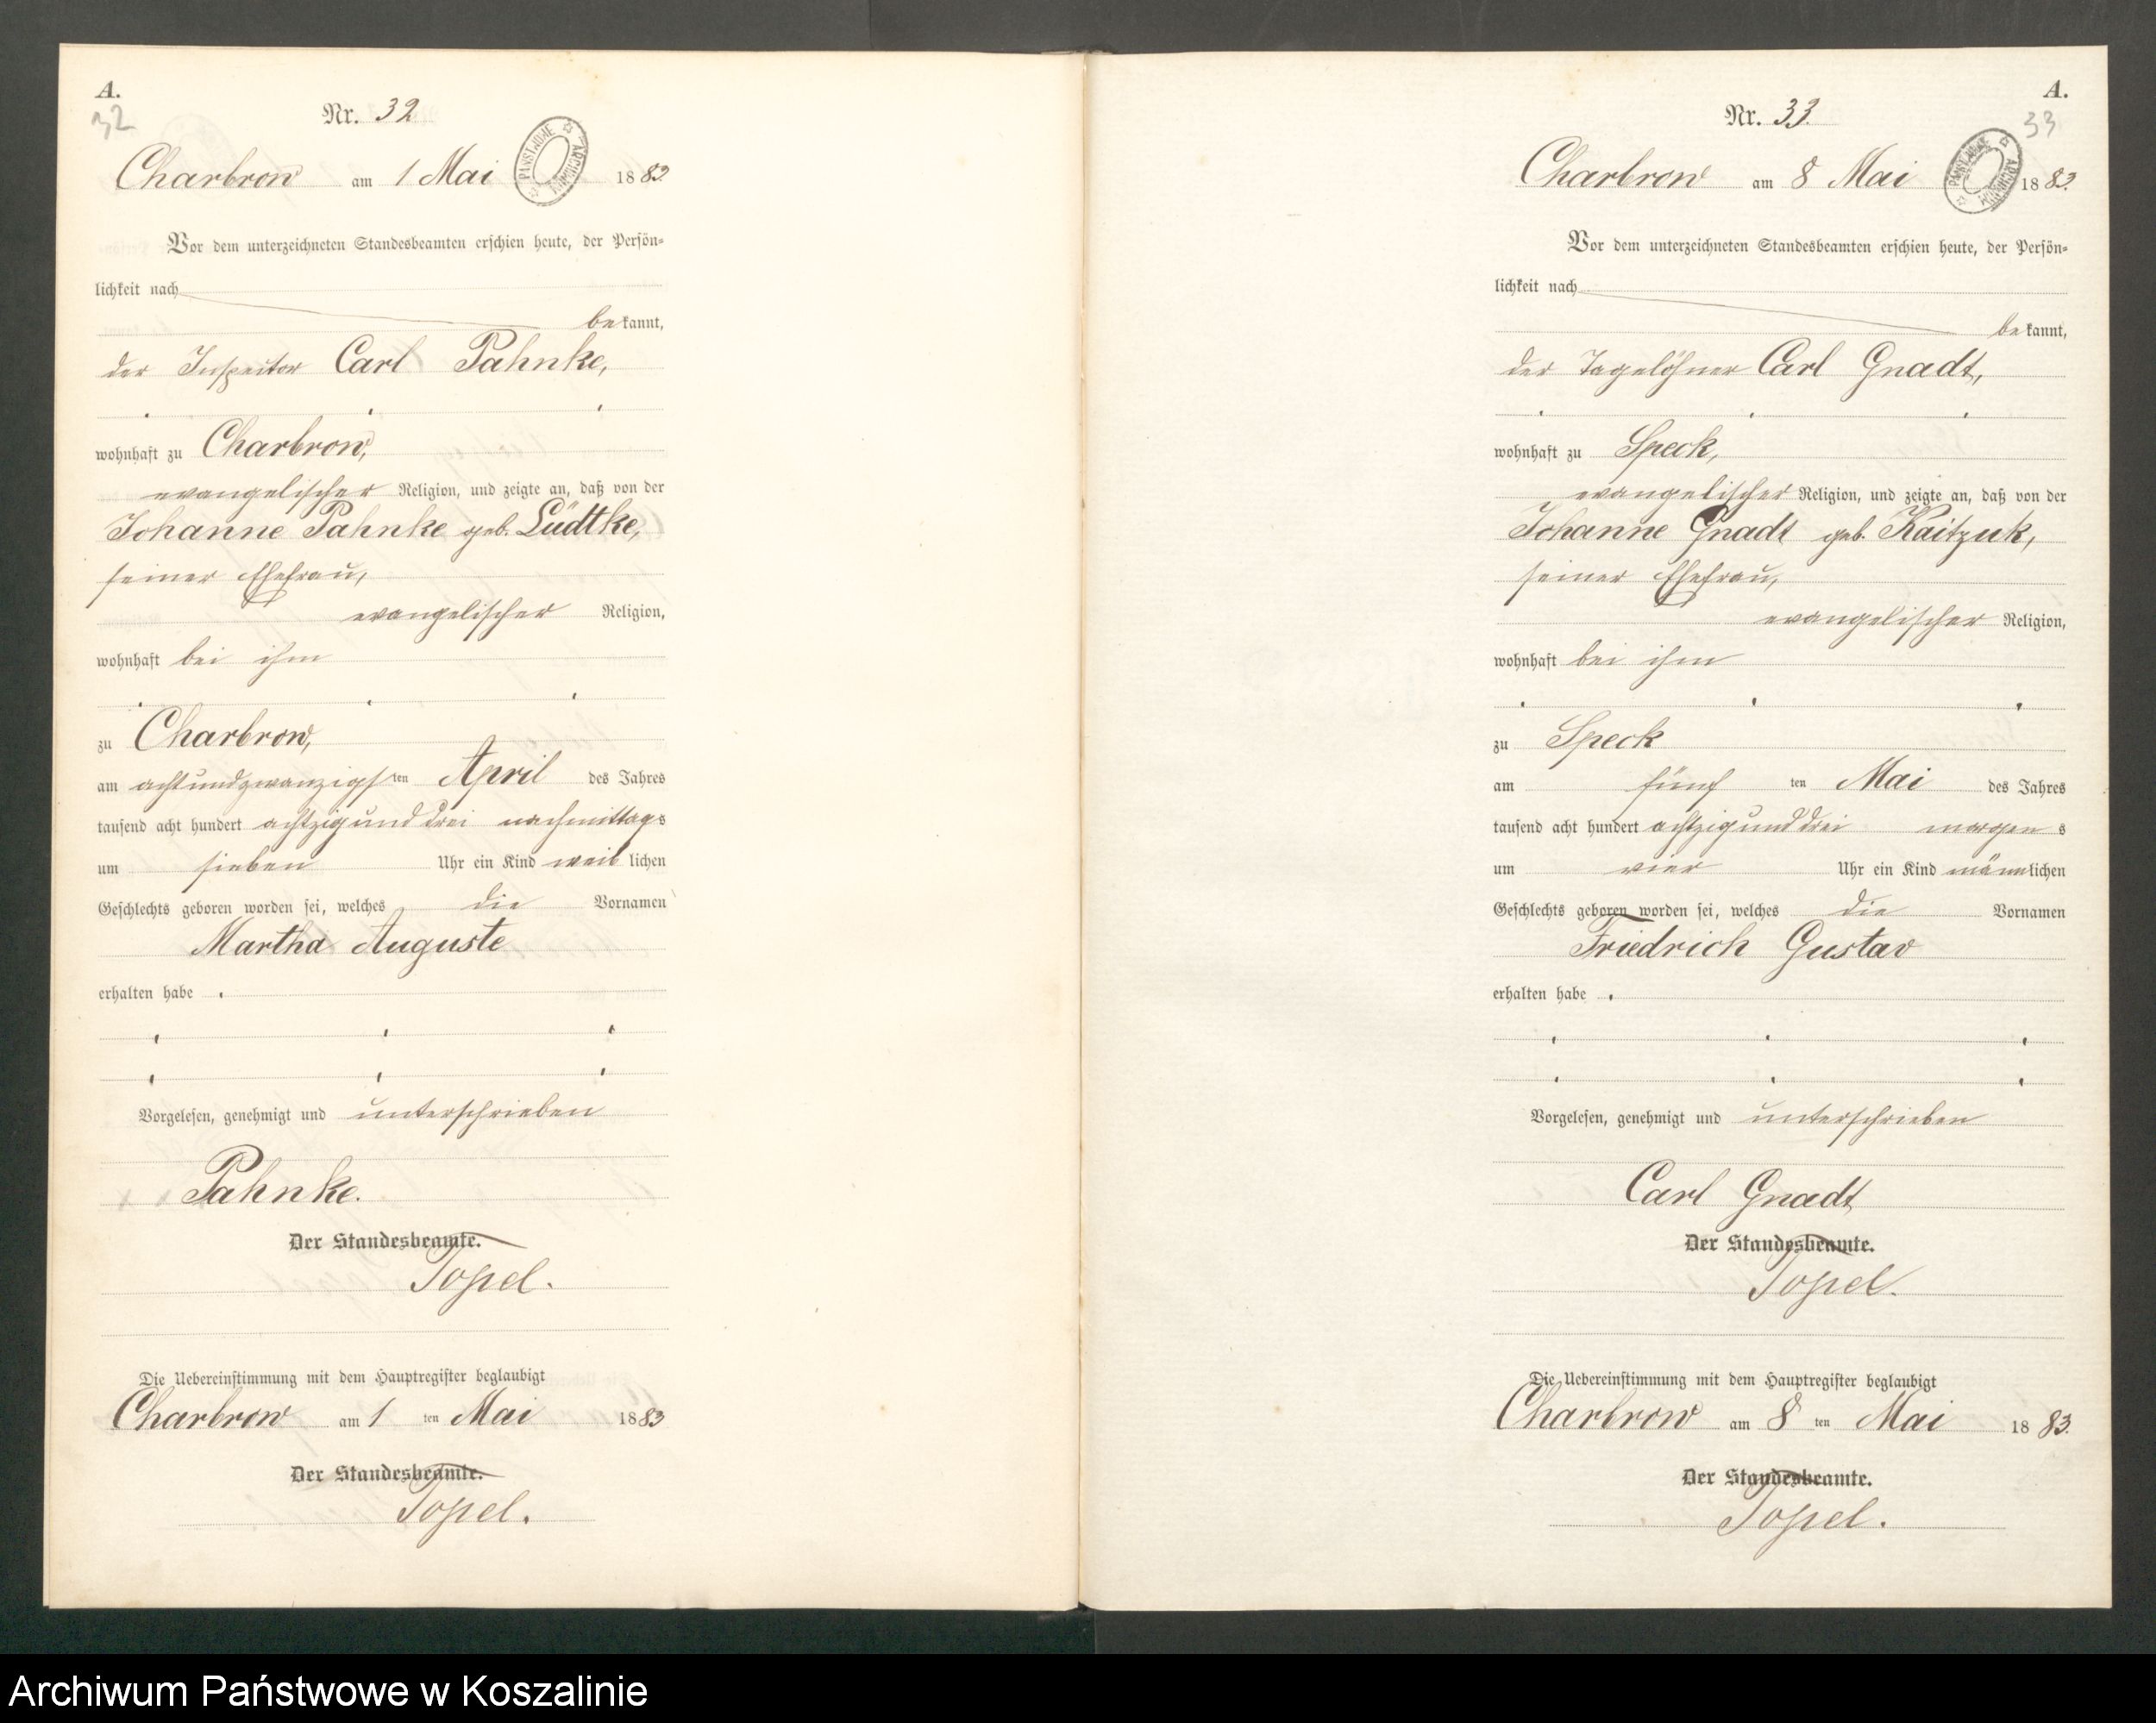 A.
32
Nr. 32
PAŃSTWOWE ARCHIWUM
Charbrow am 1 Mai 1883.
Vor dem unterzeichneten Standesbeamten erschien heute, der Persön-
lichkeit nach
bekannt,
der Inspector Carl Pahnke,
wohnhaft zu Charbrow,
evangelischer Religion, und zeigte an, daß von der
Johanne Pahnke geb. Lüdtke,
seiner Ehefrau,
evangelischer Religion,
wohnhaft bei ihm
zu Charbrow,
am achtundzwanzigsten April des Jahres
tausend acht hundert achtzig und drei nachmittags
um sieben Uhr ein Kind weiblichen
Geschlechts geboren worden sei, welches die Vornamen
Martha Auguste
erhalten habe.
Vorgelesen, genehmigt und unterschrieben
Pahnke.
Der Standesbeamte.
Topel.
Die Uebereinstimmung mit dem Hauptregister beglaubigt
Charbrow am 1 ten Mai 1883
Der Standesbeamte.
Topel.
A.
33
Nr. 33.
PAŃSTWOWE ARCHIWUM
Charbrow am 8 Mai 1883.
Vor dem unterzeichneten Standesbeamten erschien heute, der Persön-
lichkeit nach
bekannt,
der Tagelöhner Carl Gnadt,
wohnhaft zu Speck,
evangelischer Religion, und zeigte an, daß von der
Johanne Gnadt geb. Kaitzuk,
seiner Ehefrau,
evangelischer Religion,
wohnhaft bei ihm
zu Speck
am fünf ten Mai des Jahres
tausend acht hundert achtzig und drei morgens
um vier Uhr ein Kind männlichen
Geschlechts geboren worden sei, welches die Vornamen
Friedrich Gustav
erhalten habe.
Vorgelesen, genehmigt und unterschrieben
Carl Gnadt
Der Standesbeamte.
Topel.
Die Uebereinstimmung mit dem Hauptregister beglaubigt
Charbrow am 8 ten Mai 1883.
Der Standesbeamte.
Topel.
Archiwum Państwowe w Koszalinie